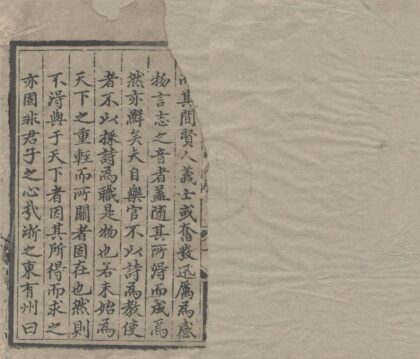 其間賢人義士或奮發迅厲為感
物言志之音者蓋隨其所淂而成焉
然亦鮮矣夫自樂官不以詩為教使
者不以採詩為職是物也若未始為
天下之重輕而所關者固在也然則
不淂與于天下者因其所得而求之
亦固非君子之心哉浙之東有州曰